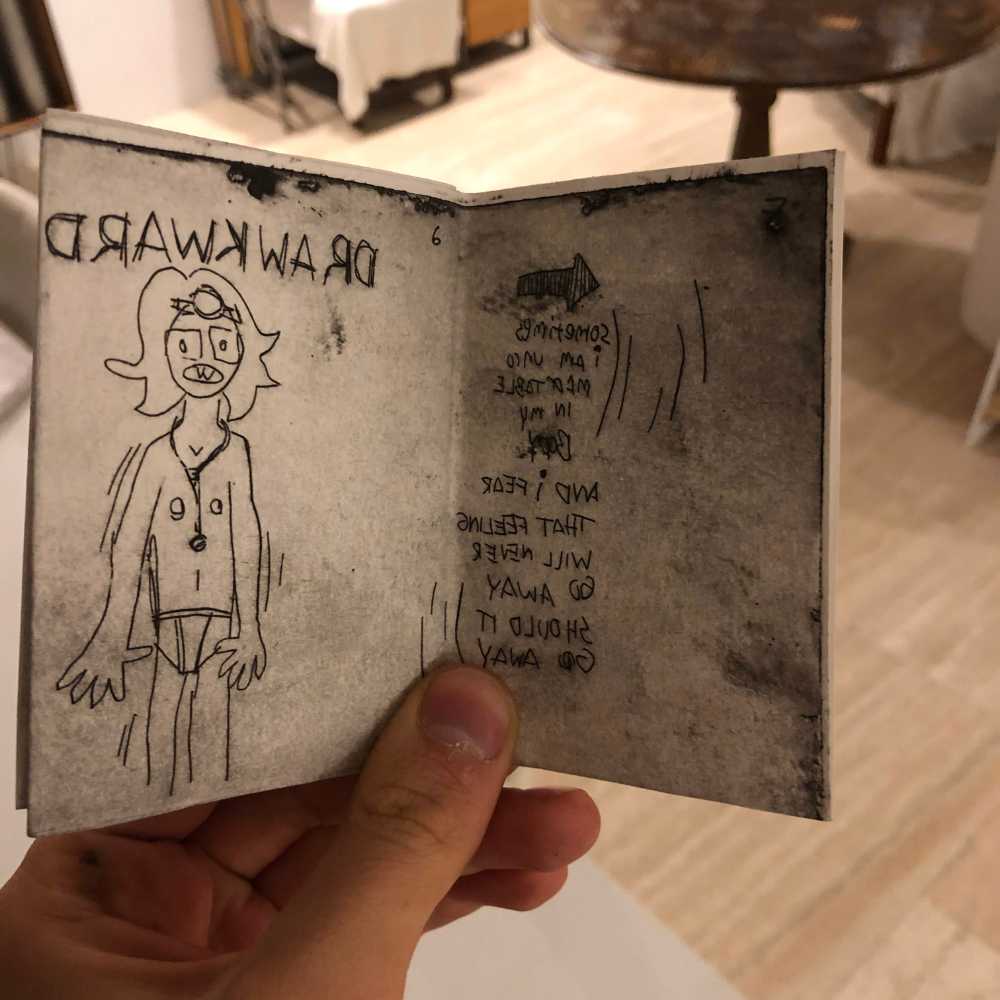 DRAWKWARD
6
sometimes
i AM UNCO
MFRTABLE
IN My
Body
AND i FEAR
THAT FEELING
WILL NEVER
GO AWAY
SHOULD IT
GO AWAY